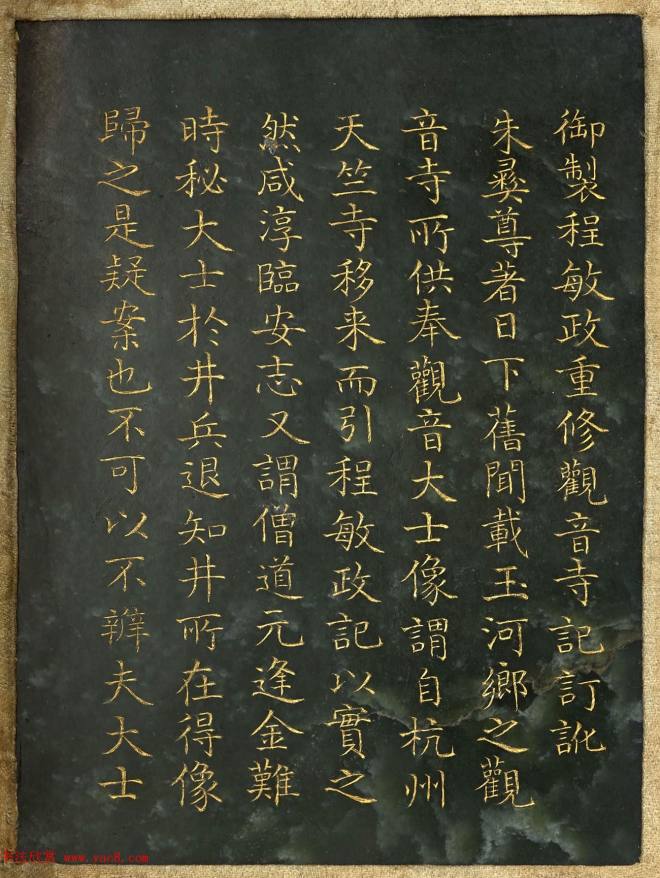 御製程敏政重修觀音寺記訂訛
朱彝尊著日下舊聞載玉河鄉之觀
音寺所供奉觀音大士像謂自杭州
天竺寺移来而引程敏政記以實之
然咸淳臨安志又謂僧道元逢金難
時秘大士於井兵退知井所在得像
歸之是疑案也不可以不辨夫大士
www.yac8.com